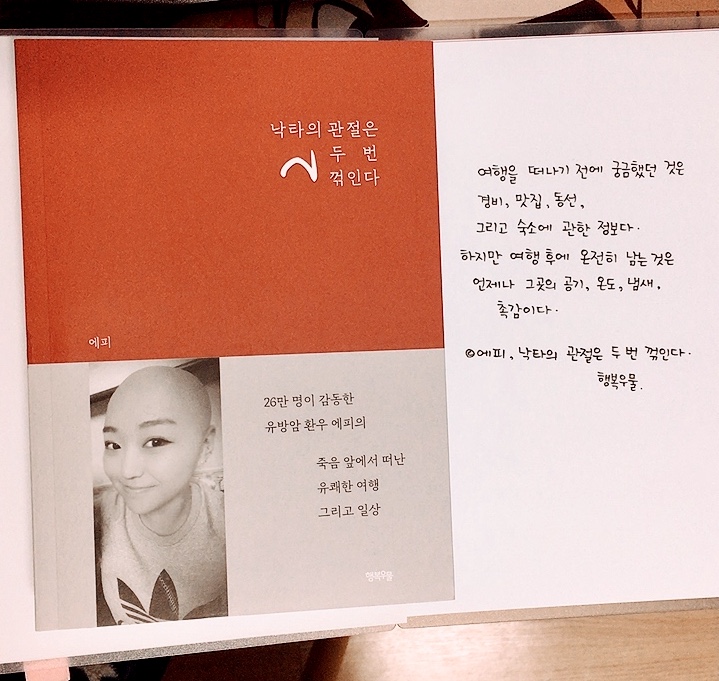 낙타의 관절은
두 번
꺾인다
에피
26만 명이 감동한
유방암 환우 에피의
죽음 앞에서 떠난
유쾌한 여행
그리고 일상
행복우물
여행을 떠나기 전에 궁금했던 것은
경비, 맛집, 동선,
그리고 숙소에 관한 정보다.
하지만 여행 후에 온전히 남는 것은
언제나 그곳의 공기, 온도, 냄새,
촉감이다.
©에피, 낙타의 관절은 두 번 꺾인다.
행복우물.